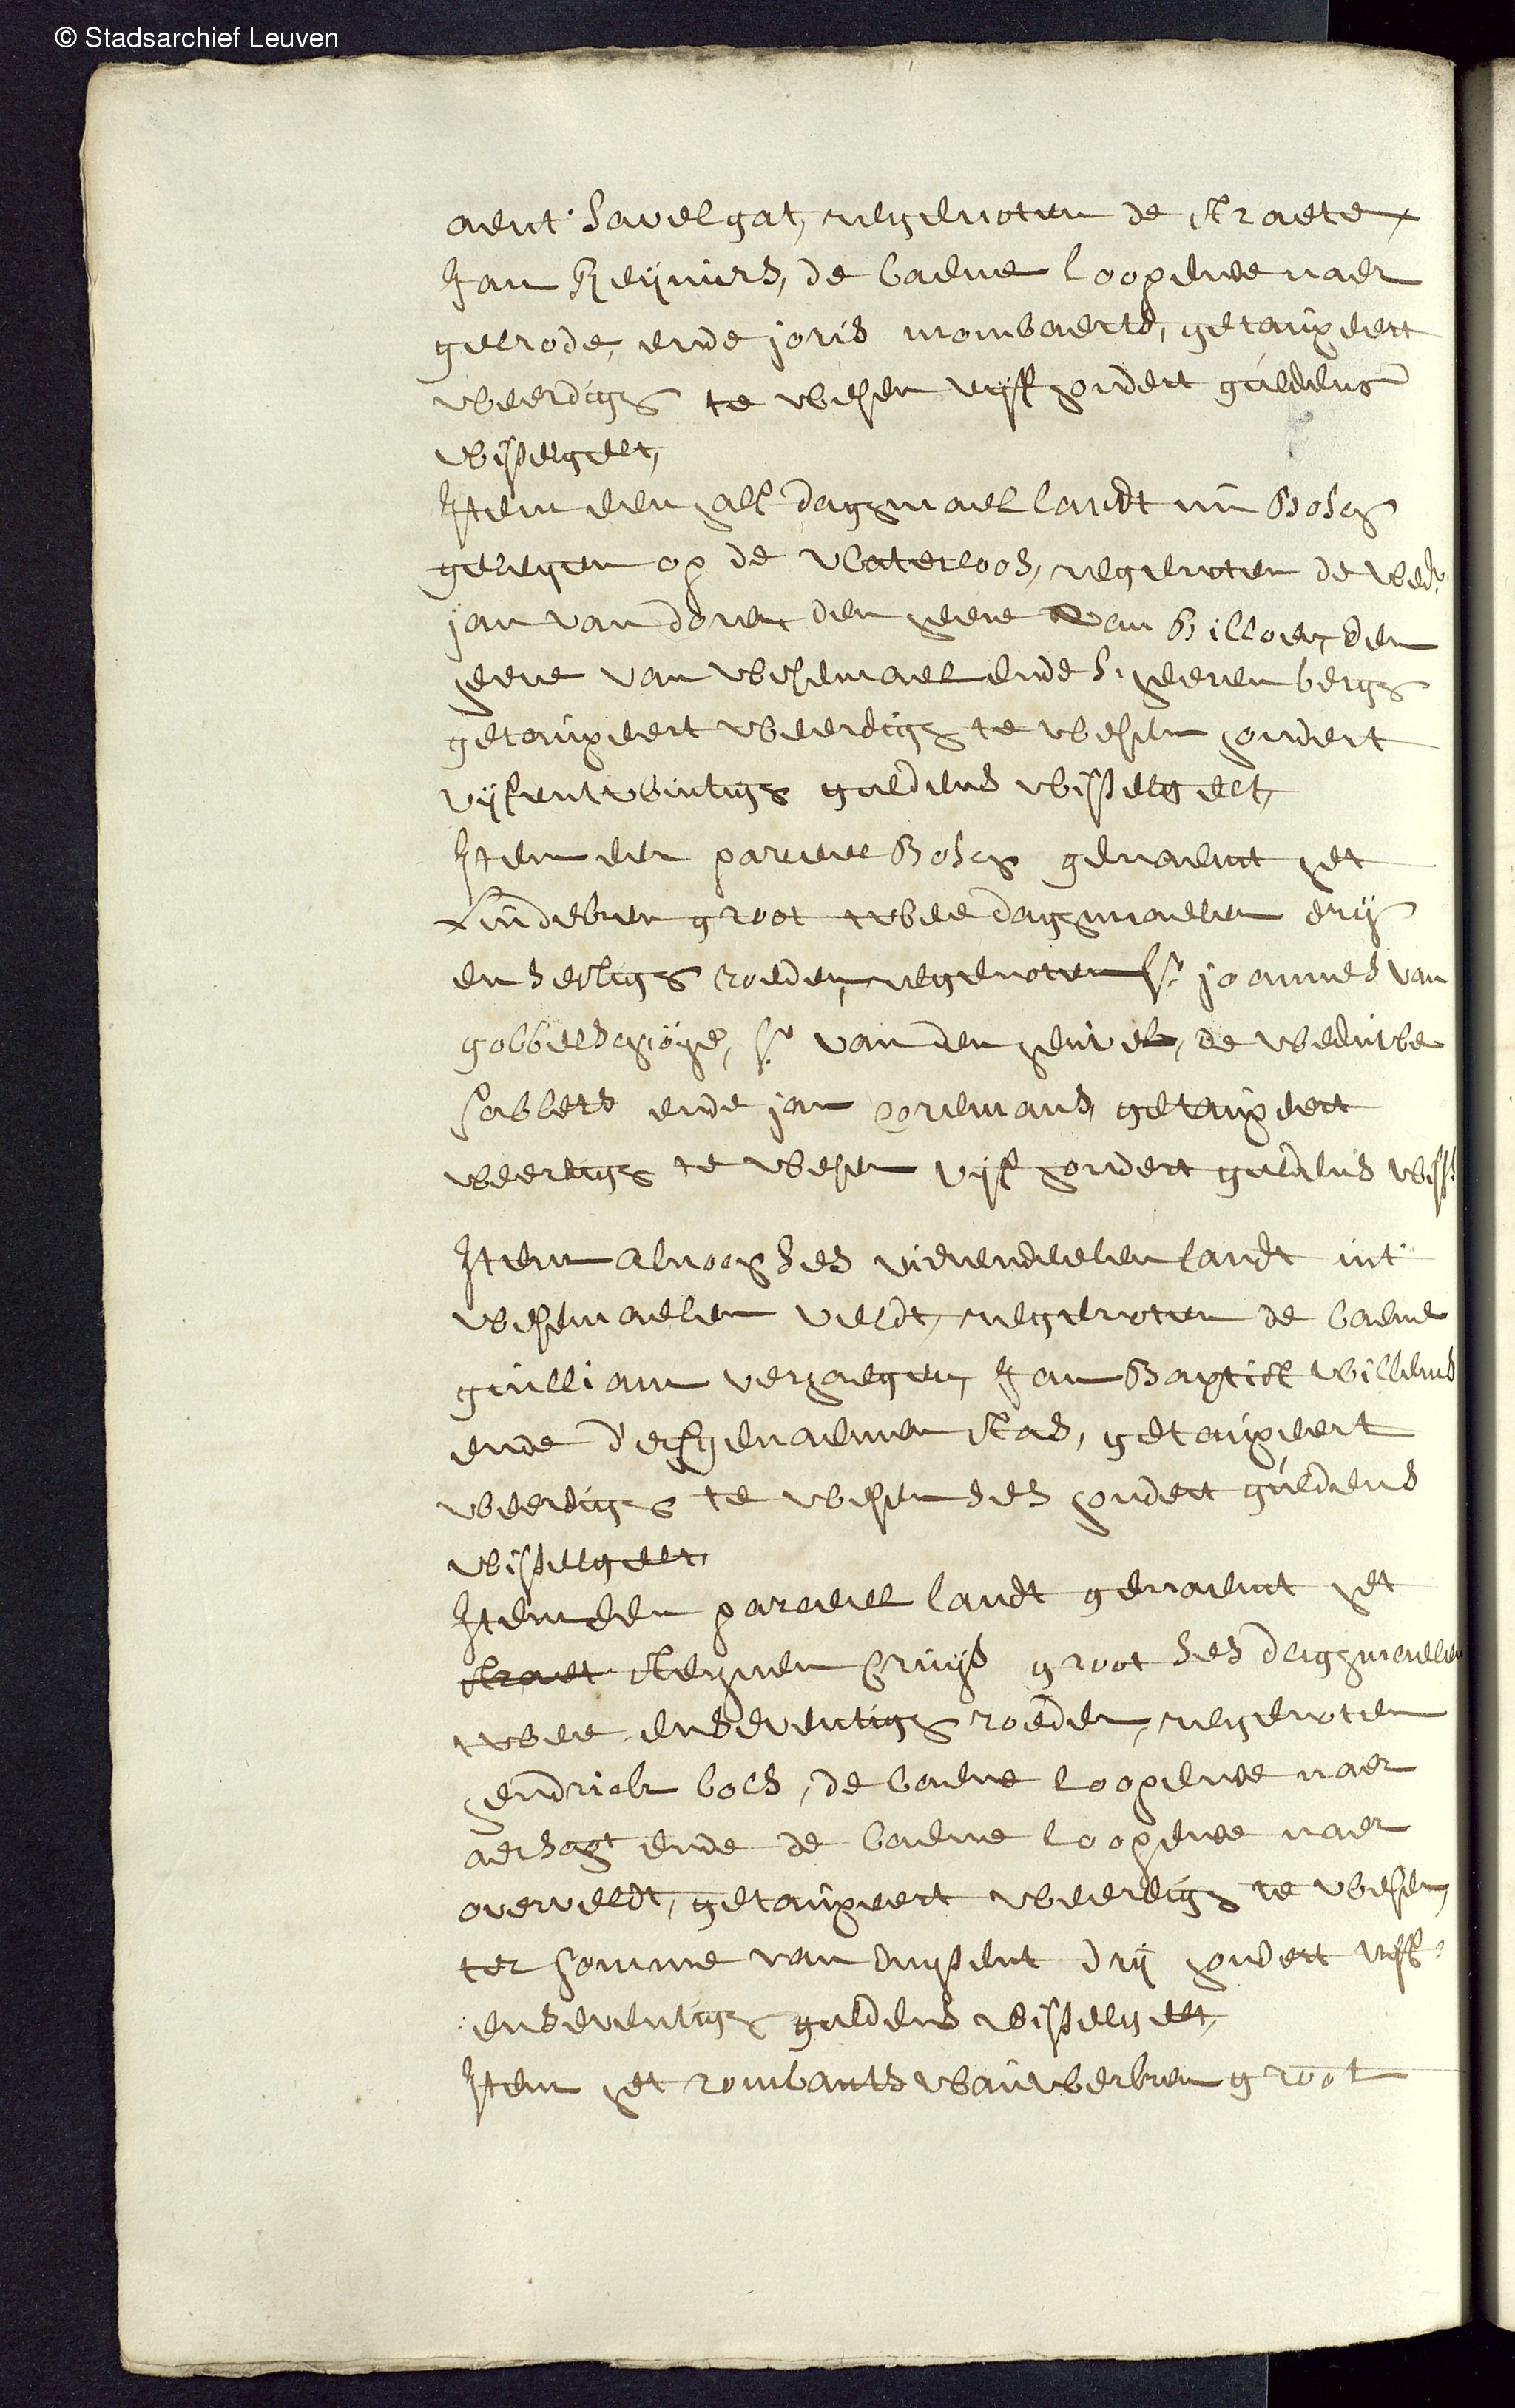 © Stadsarchief Leuven
aent Savelgat, regenoten de straete,
Jan Reijniers, de baene loopende naer
gelrode, ende joris mombaerts, getauxeert
weerdich te wesen vijff hondert guldens
wisselgelt,
Item een half dachmael landt nu Bosch
gelegen op de Waterloos, regenoten de wed.
jan van doren den heere van Billoe, den
heere van wesemael ende Sr. heerenbergh
getauxeert weerdich te wesen hondert
vijfentwintich guldens wisselgelt,
Item een parceel Bosch genaemt het
Lindeken groot twee dachmaelen drij
ensestich roeden, regenoten Sr. joannes van
gobbelschroije, Sr. van den heuvel, de weduwe
sabbets ende jan horemans, getauxeert
weerdich te wesen vijf hondert guldens wiss.
Item alnoch ses vierendeelen landt int
wesemaelen veldt, regenoten de baene
guilliam verhaegen, Jan Baptist Willems
ende d'erfgenaemen Stas, getauxeert
weerdich te wesen ses hondert guldens
wisselgelt,
Item een parceel landt genaemt het
straet steijnen Cruijs groot ses dachmaelen
twee enseventich roeden, regenoten
hendrick bols, de baene loopende naer
aerschot ende de baene loopende naer
overveldt, getauxeert weerdich te wesen,
ter somme van duijsent drij hondert vijff
enseventich guldens wisselgelt,
Item het rombauts wauwerken groot